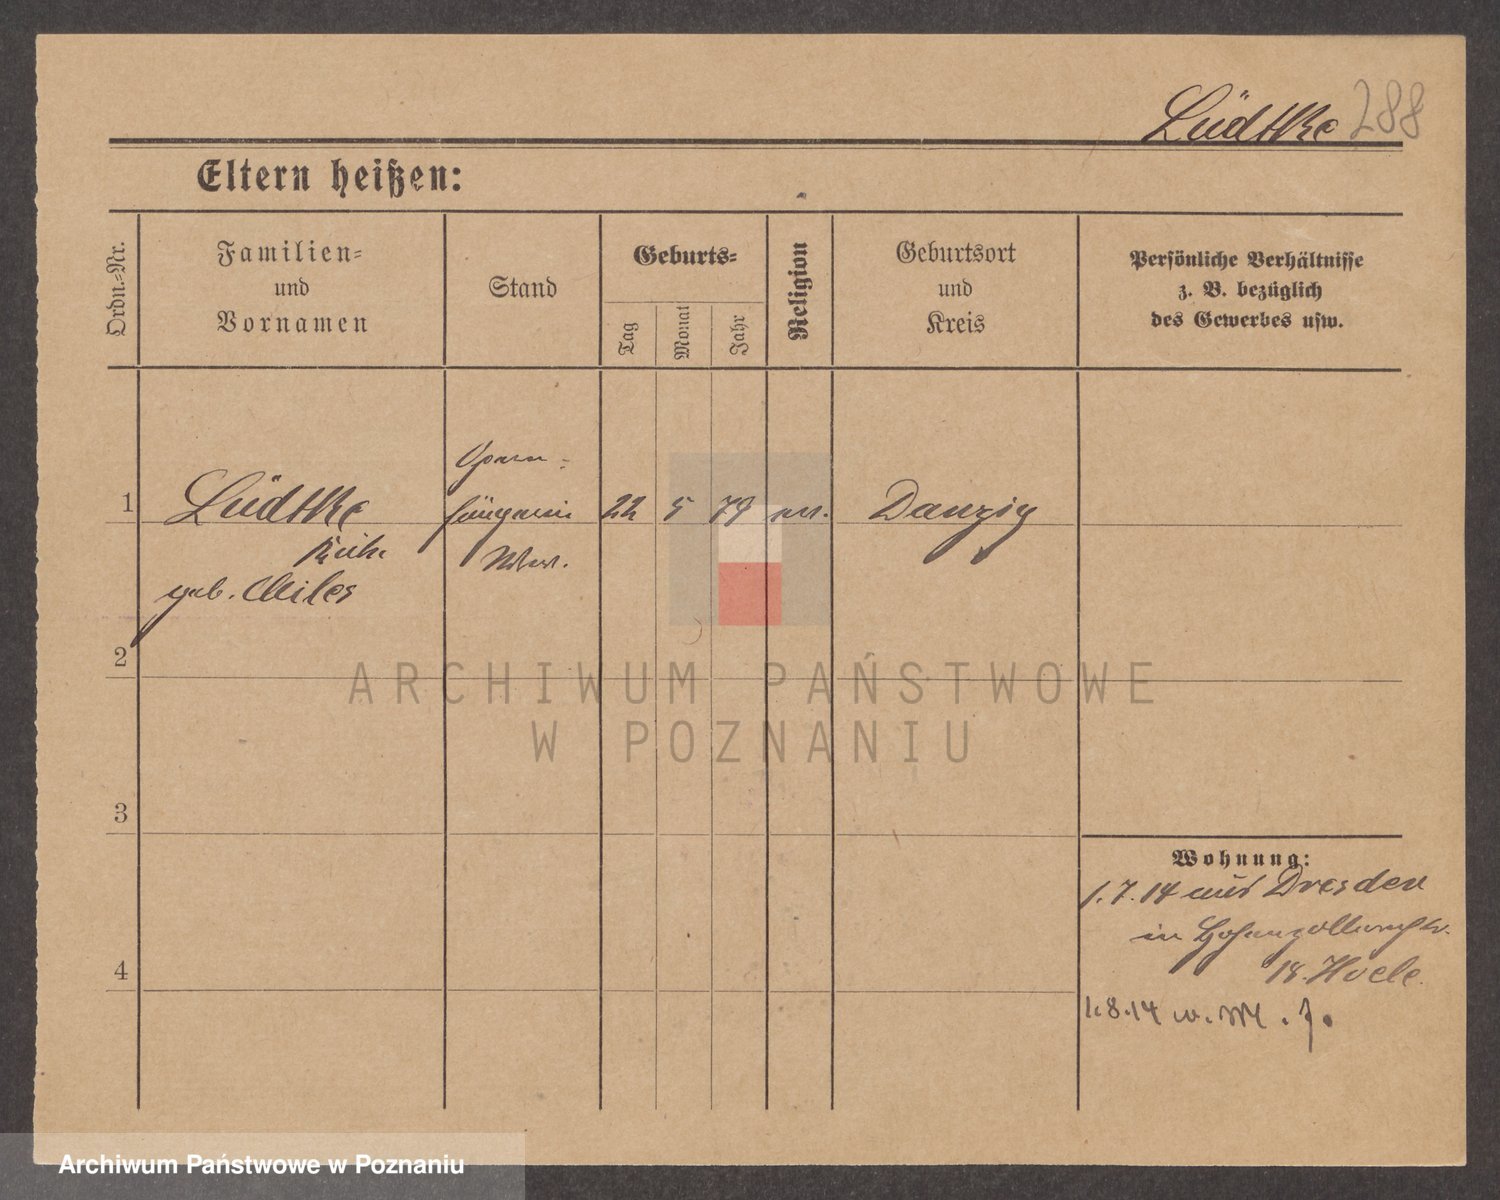 Lüdtke 288
Eltern heißen:
Ordn.-Nr.
Familien-
und
Vornamen
Stand
Geburts-
Tag
Monat
Jahr
Religion
Geburtsort
und
Kreis
Persönliche Verhältnisse
z. B. bezüglich
des Gewerbes usw.
Opern-
1 Lüdtke sängerin 22 5 79 ev. Danzig
Wwe.
geb.
2
ARCHIWUM PAŃSTWOWE
W POZNANIU
3
Wohnung:
1.7.14 aus Dresden
in Hohenzollernstr.
18.
4
1.8.14
Archiwum Państwowe w Poznaniu